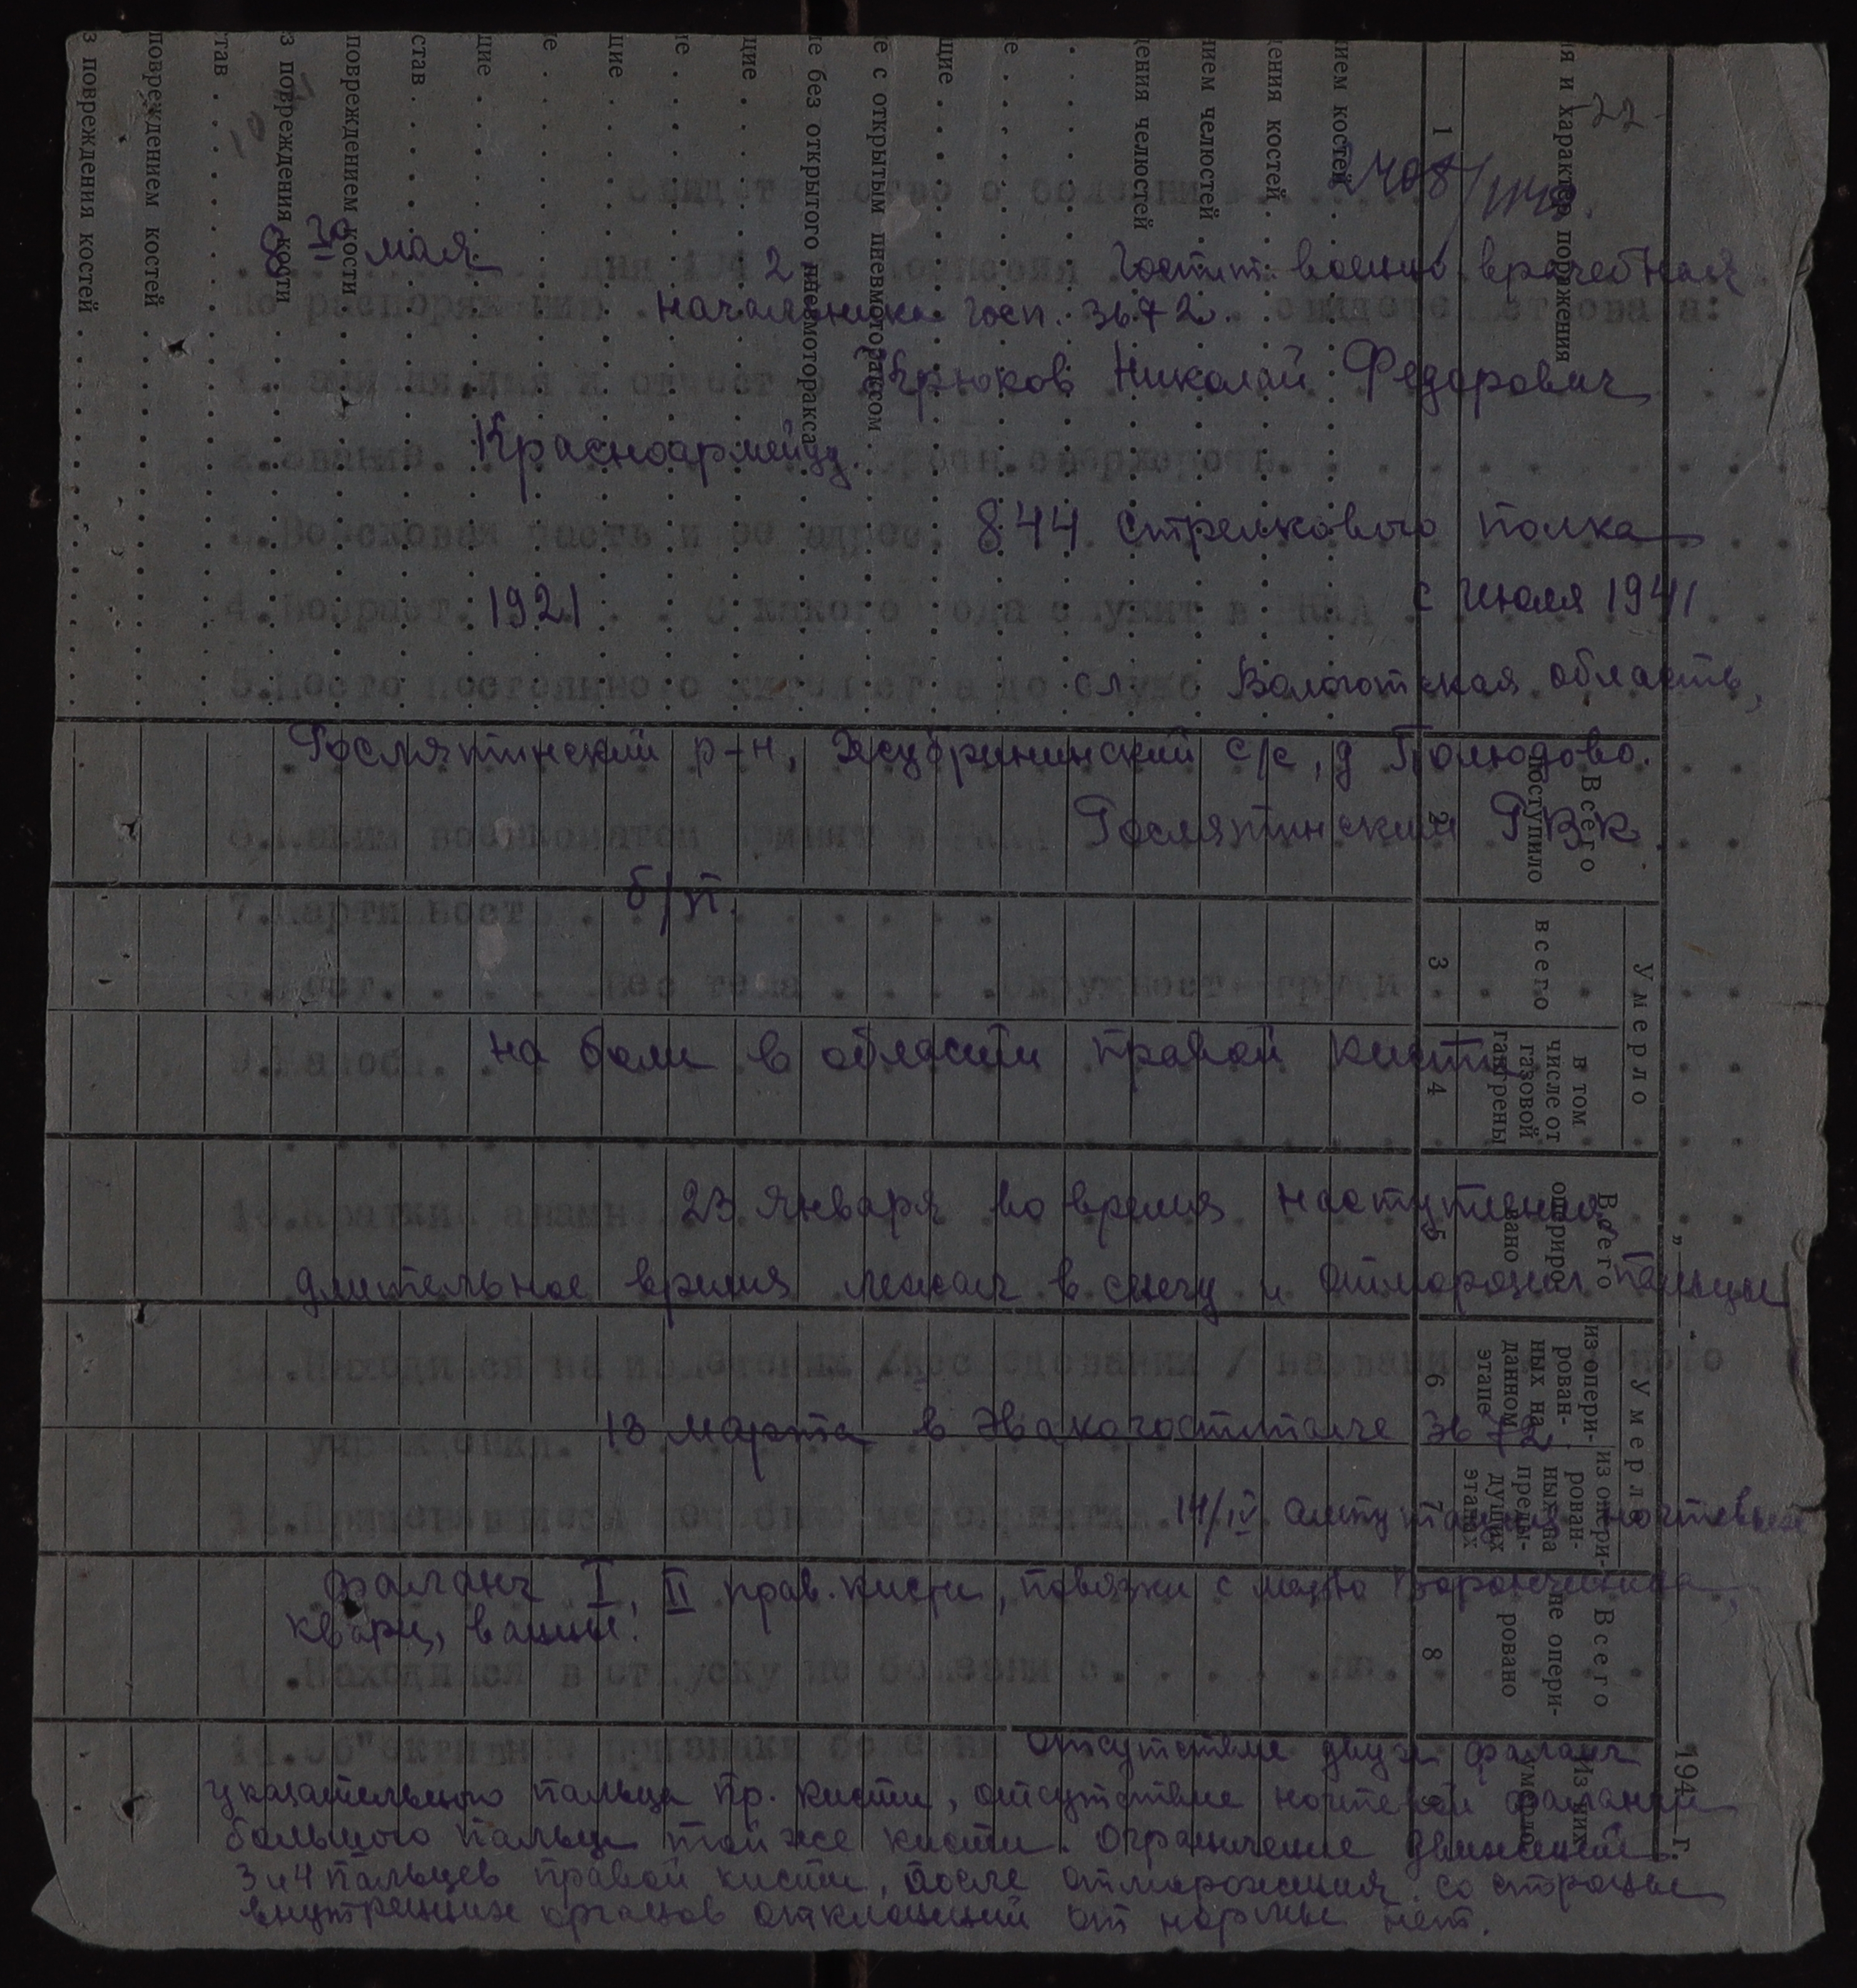 22
2408/1140.
Свидетельство о болезни
8го мая дня 194 2 г. Комиссия Госпит. военно врачебная
По распоряжению начальника госп. 3672. свидетельствовала:
1. Фамилия, имя и отчество Крюков Николай Федорович
2. Звание. Красноармейцу.
3. Войсковая часть и ее адрес. 844 стрелкового полка
4. Возраст. 1921 С какого года служит в РККА с Июля 1941
5. Место постоянного жительства до службы Вологотская область,
Рослятинский р-н, с/с, д Полюдово.
6. Каким военкоматом принят Рослятинский РВК
7. Партийность б/п.
8. Рост. . . . . Вес тела . . . . Окружность груди . . .
9. Жалобы. на боли в области правой кисти
10. Краткий анамнез 23 Января во время наступления
длительное время лежал в снегу и отморозил пальцы
11. Находился на излечении /исследовании/ название лечебного
учреждения. 13 марта в Эвакогоспитале 3672
12. Применявшиеся лечебные мероприятия. 14/IV ампутация ногтевых
фаланг I, II прав. кисти, повязки с мазью
кварц, ванны.
13. Находился в отпуску по болезни с. . . . . . по. . . . . . .
14. Об"ективные признаки болезни отсутствие двух фаланг
указательного пальца пр. кисти, отсутствие ногтевой фаланги
большого пальца той же кисти. Ограничение движений
3 и 4 пальцев правой кисти, после отморожения. со стороны
внутренних органов отклонений от нормы нет.
я и характер поражения
1
нием костей
ения костей
нием челюстей
ения челюстей
е с открытым пневмотораксом
е без открытого пневмоторакса
щие
став
повреждением кости
з повреждения кости
тав
повреждением костей
з повреждения костей
Всего поступило
2
Умерло
всего
3
в том числе от газовой гангрены
4
Всего оперировано
5
Умерло
из оперированных на данном этапе
6
из оперированных на предыдущих этапах
7
Всего не оперировано
8
Из них умерло
„ “ 194 г.